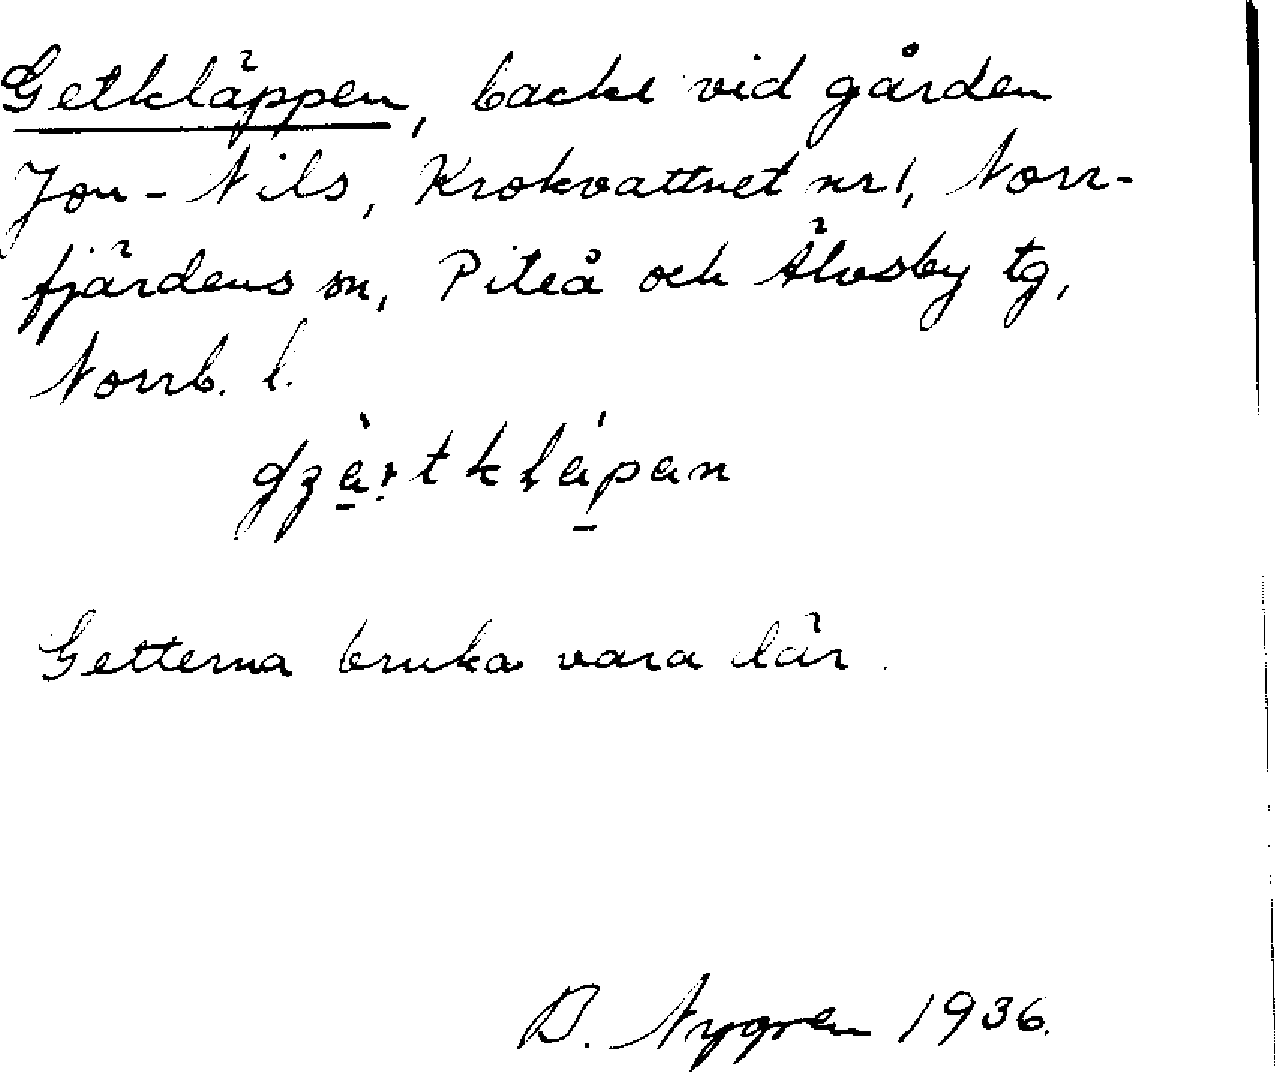 Getkläppen, backe vid gården
Jon-Nils, Krokvattnet nr 1, Norr-
fjärdens sn, Piteå och Älvsby tg,
Norrb. l.
Getterna bruka vara där.
B. Nygren 1936.